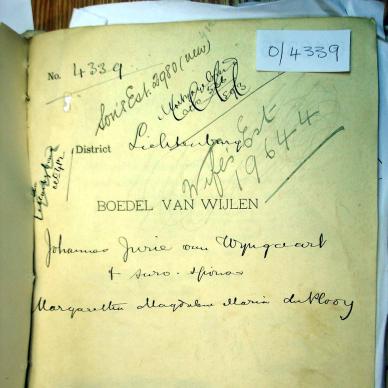 0/4339
No. 4339
Son's Est. 2980 (new)
District Lichtenburg
Wife's Est
19644
BOEDEL VAN WIJLEN
Johannes Jurie van Wyngaart
& surv. spouse
Margaretha Magdalena Maria du Plooy